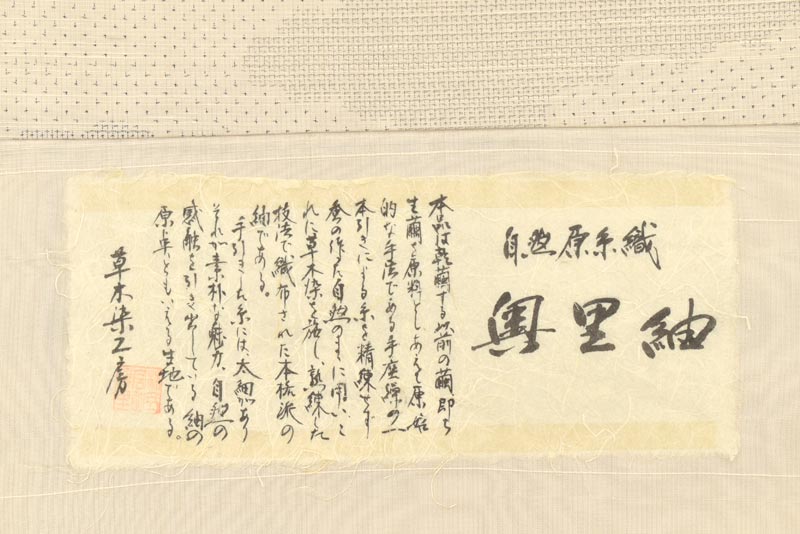 自然原糸織
奥里紬
本品は乾繭する以前の繭即ち
生繭を原料とし、あえて原始
的な手法である手座繰の一
本引きによる糸を精練せず
蚕の作った自然のままに用い、こ
れに草木染を施し、熟練した
技法で織布された本格派の
紬である。
手引きした糸には、太細があり
それが素朴な魅力、自然の
感触を引き出している紬の
原点ともいえる生地である。
草木染工房